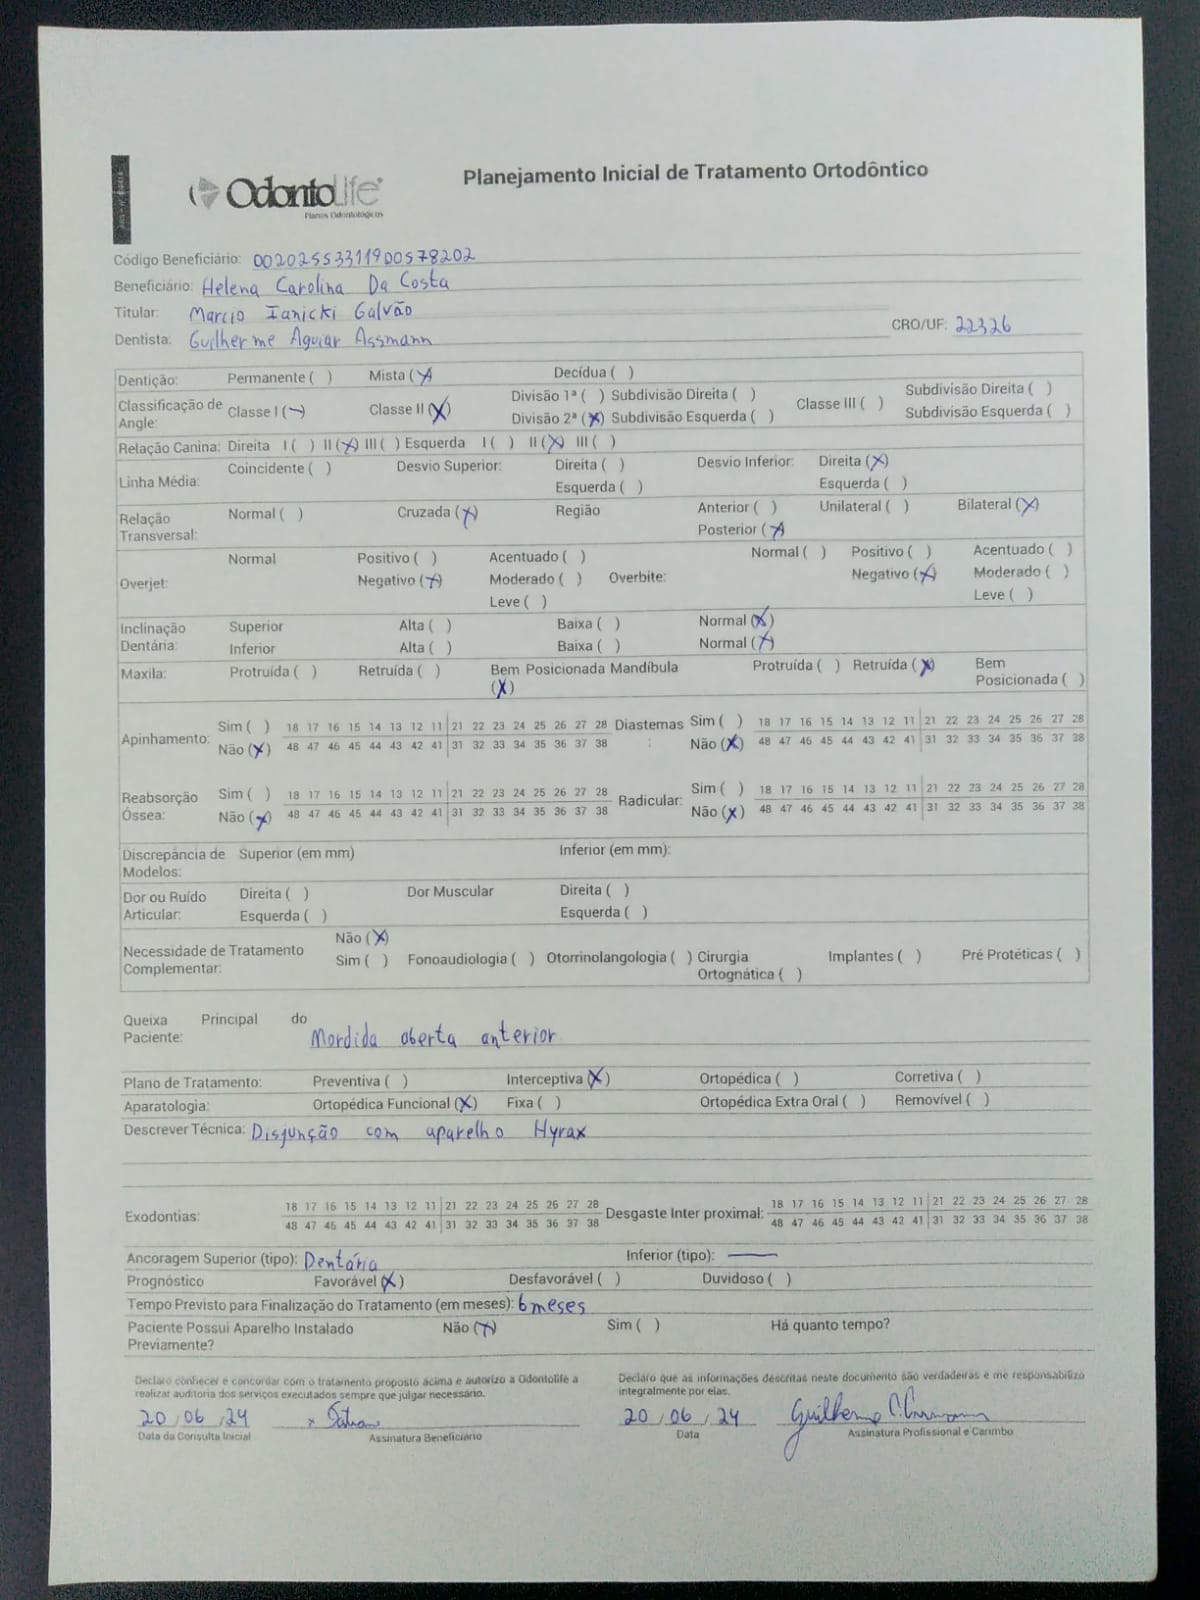 OdontoLife
Planos Odontológicos
Planejamento Inicial de Tratamento Ortodôntico
Código Beneficiário: 00202553311900578202
Beneficiário: Helena Carolina Da Costa
Titular: Marcio Ianicki Galvão
Dentista: Guilherme Aguiar Assmann CRO/UF: 22326
Dentição: Permanente ( ) Mista (X) Decídua ( )
Classificação de Angle: Classe I (–) Classe II (X) Divisão 1ª ( ) Subdivisão Direita ( ) Classe III ( ) Subdivisão Direita ( )
Divisão 2ª (X) Subdivisão Esquerda ( ) Subdivisão Esquerda ( )
Relação Canina: Direita I ( ) II (X) III ( ) Esquerda I ( ) II (X) III ( )
Linha Média: Coincidente ( ) Desvio Superior: Direita ( ) Desvio Inferior: Direita (X)
Esquerda ( ) Esquerda ( )
Relação Transversal: Normal ( ) Cruzada (X) Região Anterior ( ) Unilateral ( ) Bilateral (X)
Posterior (X)
Overjet: Normal Positivo ( ) Acentuado ( ) Overbite: Normal ( ) Positivo ( ) Acentuado ( )
Negativo (X) Moderado ( ) Negativo (X) Moderado ( )
Leve ( ) Leve ( )
Inclinação Dentária: Superior Alta ( ) Baixa ( ) Normal (X)
Inferior Alta ( ) Baixa ( ) Normal (X)
Maxila: Protruída ( ) Retruída ( ) Bem Posicionada (X) Mandíbula Protruída ( ) Retruída (X) Bem Posicionada ( )
Apinhamento: Sim ( ) 18 17 16 15 14 13 12 11 21 22 23 24 25 26 27 28 Diastemas: Sim ( ) 18 17 16 15 14 13 12 11 21 22 23 24 25 26 27 28
Não (X) 48 47 46 45 44 43 42 41 31 32 33 34 35 36 37 38 Não (X) 48 47 46 45 44 43 42 41 31 32 33 34 35 36 37 38
Reabsorção Óssea: Sim ( ) 18 17 16 15 14 13 12 11 21 22 23 24 25 26 27 28 Radicular: Sim ( ) 18 17 16 15 14 13 12 11 21 22 23 24 25 26 27 28
Não (X) 48 47 46 45 44 43 42 41 31 32 33 34 35 36 37 38 Não (X) 48 47 46 45 44 43 42 41 31 32 33 34 35 36 37 38
Discrepância de Modelos: Superior (em mm) Inferior (em mm):
Dor ou Ruído Articular: Direita ( ) Dor Muscular Direita ( )
Esquerda ( ) Esquerda ( )
Necessidade de Tratamento Complementar: Não (X)
Sim ( ) Fonoaudiologia ( ) Otorrinolangologia ( ) Cirurgia Ortognática ( ) Implantes ( ) Pré Protéticas ( )
Queixa Principal do Paciente: Mordida aberta anterior
Plano de Tratamento: Preventiva ( ) Interceptiva (X) Ortopédica ( ) Corretiva ( )
Aparatologia: Ortopédica Funcional (X) Fixa ( ) Ortopédica Extra Oral ( ) Removível ( )
Descrever Técnica: Disjunção com aparelho Hyrax
Exodontias: 18 17 16 15 14 13 12 11 21 22 23 24 25 26 27 28 Desgaste Inter proximal: 18 17 16 15 14 13 12 11 21 22 23 24 25 26 27 28
48 47 46 45 44 43 42 41 31 32 33 34 35 36 37 38 48 47 46 45 44 43 42 41 31 32 33 34 35 36 37 38
Ancoragem Superior (tipo): Dentária Inferior (tipo): —
Prognóstico Favorável (X) Desfavorável ( ) Duvidoso ( )
Tempo Previsto para Finalização do Tratamento (em meses): 6 meses
Paciente Possui Aparelho Instalado Previamente? Não (X) Sim ( ) Há quanto tempo?
Declaro conhecer e concordar com o tratamento proposto acima e autorizo a Odontolife a realizar auditoria dos serviços executados sempre que julgar necessário.
Declaro que as informações descritas neste documento são verdadeiras e me responsabilizo integralmente por elas.
20 / 06 / 24 x 20 / 06 / 24 Guilherme
Data da Consulta Inicial Assinatura Beneficiário Data Assinatura Profissional e Carimbo